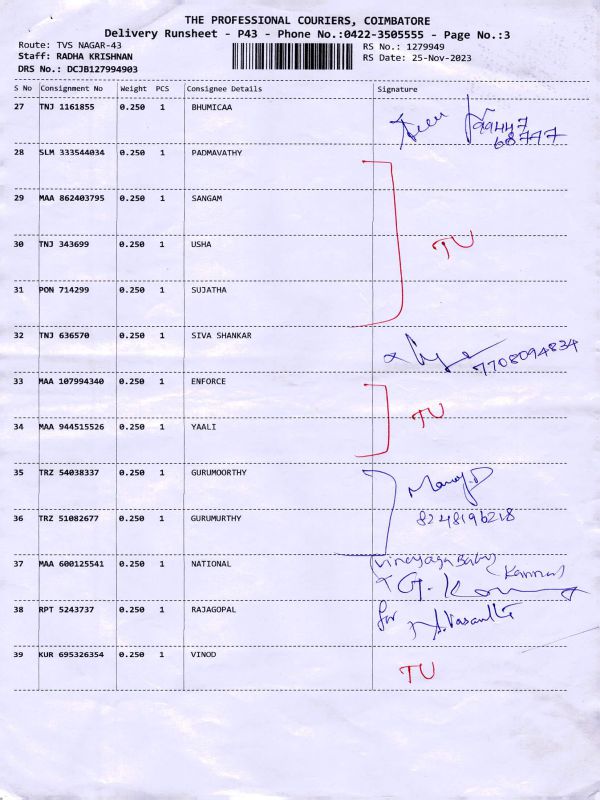 THE PROFESSIONAL COURIERS, COIMBATORE
Delivery Runsheet - P43 - Phone No.:0422-3505555 - Page No.:3
Route: TVS NAGAR-43 RS No.: 1279949
Staff: RADHA KRISHNAN RS Date: 25-Nov-2023
DRS No.: DCJB127994903
S No Consignment No Weight PCS Consignee Details Signature
27 TNJ 1161855 0.250 1 BHUMICAA
28 SLM 333544034 0.250 1 PADMAVATHY
29 MAA 862403795 0.250 1 SANGAM
30 TNJ 343699 0.250 1 USHA TU
31 PON 714299 0.250 1 SUJATHA
32 TNJ 636570 0.250 1 SIVA SHANKAR
7708094834
33 MAA 107994340 0.250 1 ENFORCE
TU
34 MAA 944515526 0.250 1 YAALI
35 TRZ 54038337 0.250 1 GURUMOORTHY Manoj.D
36 TRZ 51082677 0.250 1 GURUMURTHY 8248196218
37 MAA 600125541 0.250 1 NATIONAL Vinayaga Baby (Kannan)
38 RPT 5243737 0.250 1 RAJAGOPAL for
39 KUR 695326354 0.250 1 VINOD TU